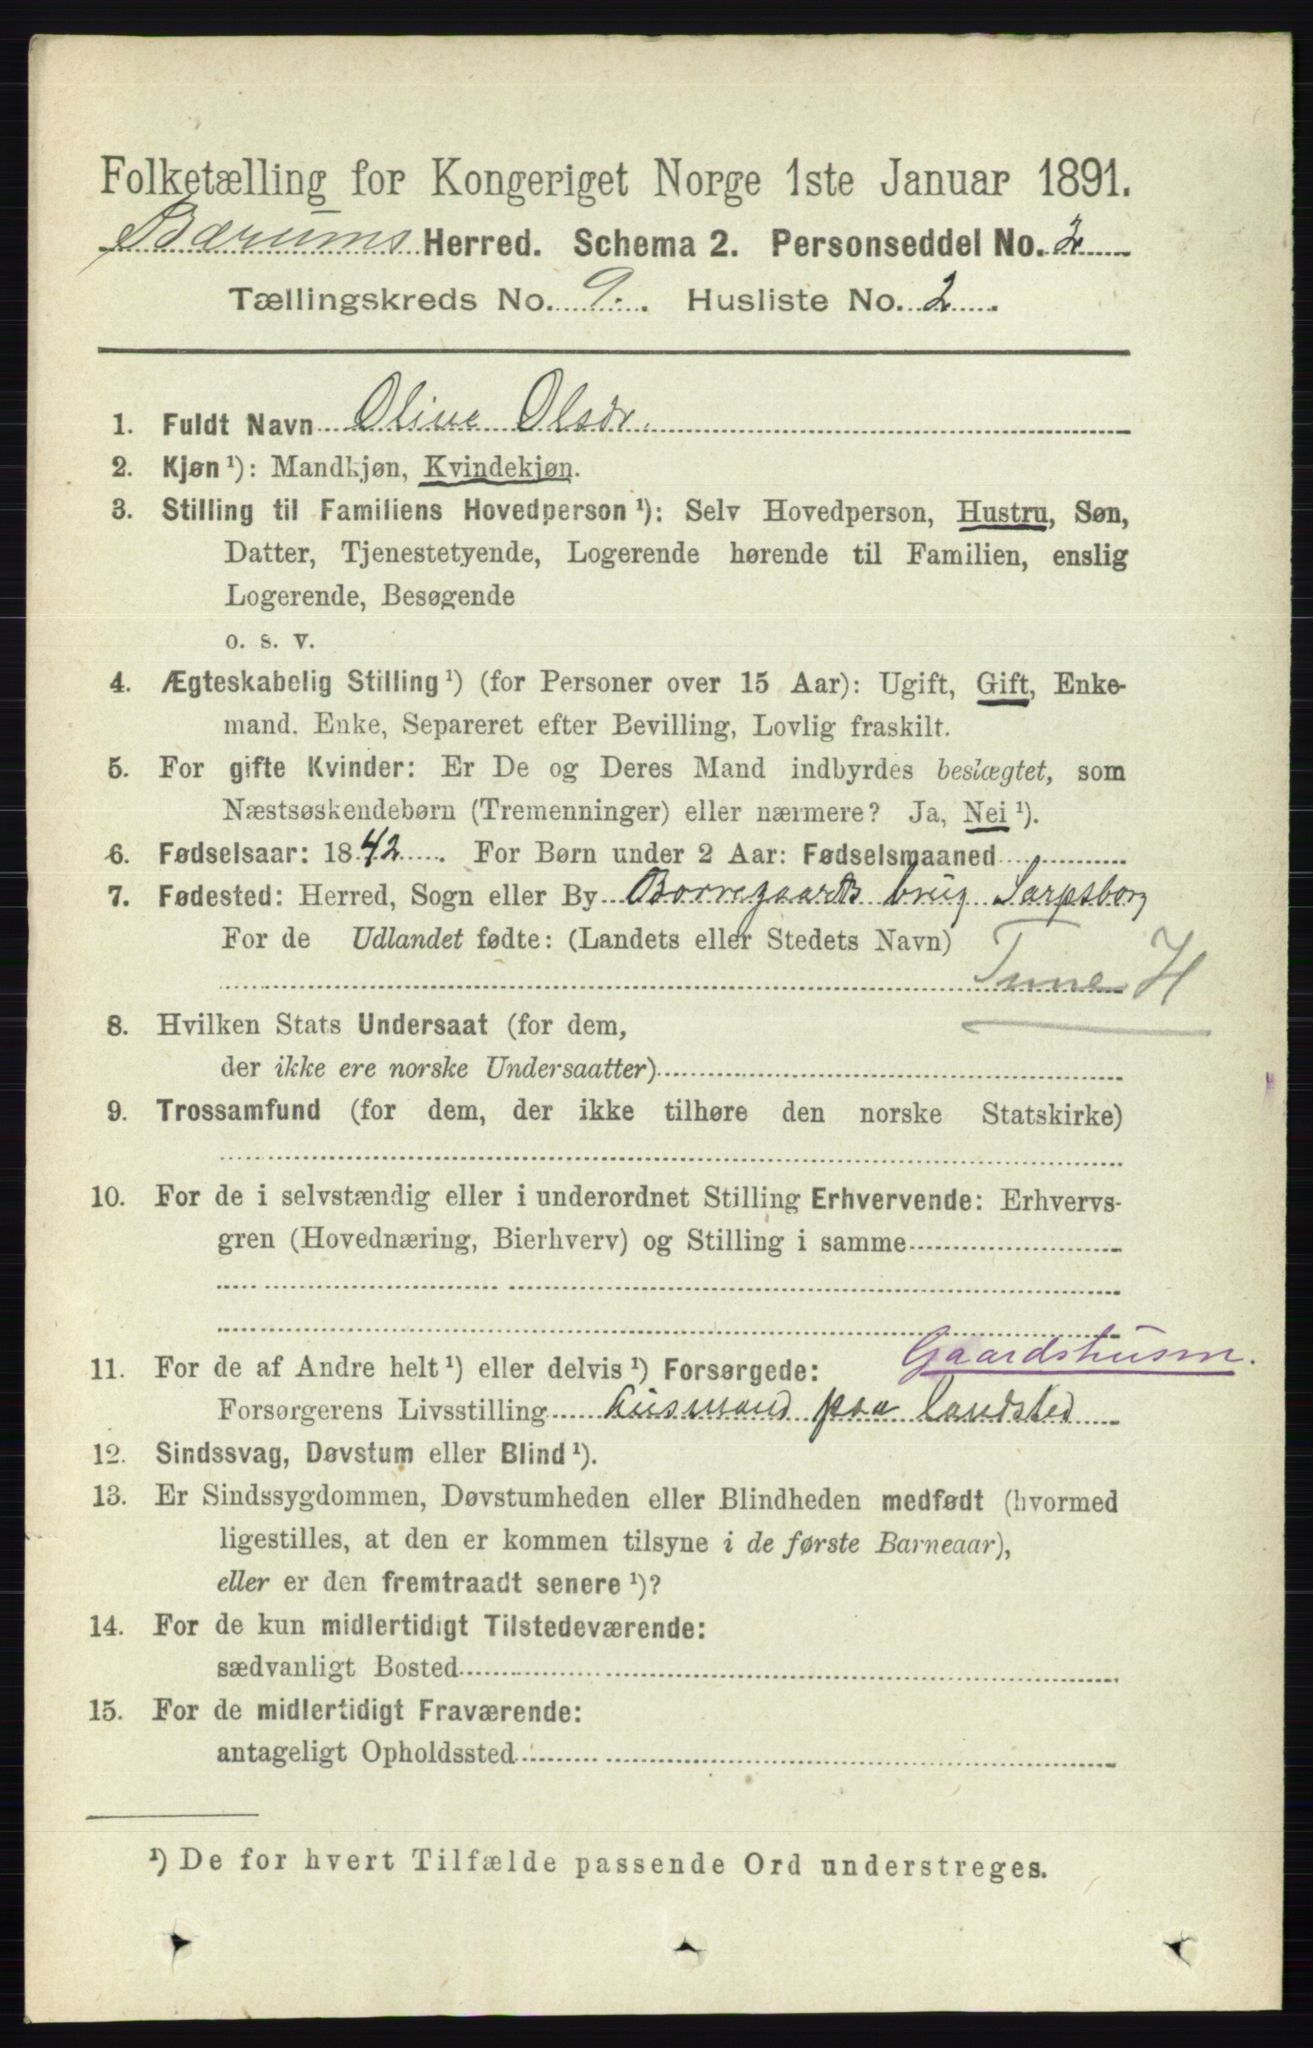 Folketælling for Kongeriget Norge 1ste Januar 1891.
Bærums Herred. Schema 2. Personseddel No. 2
Tællingskreds No. 9. Husliste No. 2
1. Fuldt Navn Oline Olsdr.
2. Kjøn ¹): Mandkjøn, Kvindekjøn.
3. Stilling til Familiens Hovedperson ¹): Selv Hovedperson, Hustru, Søn,
Datter, Tjenestetyende, Logerende hørende til Familien, enslig
Logerende, Besøgende
o. s. v.
4. Ægteskabelig Stilling ¹) (for Personer over 15 Aar): Ugift, Gift, Enke-
mand, Enke, Separeret efter Bevilling, Lovlig fraskilt.
5. For gifte Kvinder: Er De og Deres Mand indbyrdes beslægtet, som
Næstsøskendebørn (Tremenninger) eller nærmere? Ja, Nei ¹).
6. Fødselsaar: 1842. For Børn under 2 Aar: Fødselsmaaned
7. Fødested: Herred, Sogn eller By Borregaards brug Sarpsborg
For de Udlandet fødte: (Landets eller Stedets Navn)
Tune H
8. Hvilken Stats Undersaat (for dem,
der ikke ere norske Undersaatter)
9. Trossamfund (for dem, der ikke tilhøre den norske Statskirke)
10. For de i selvstændig eller i underordnet Stilling Erhvervende: Erhvervs-
gren (Hovednæring, Bierhverv) og Stilling i samme
Gaardshusm.
11. For de af Andre helt ¹) eller delvis ¹) Forsørgede:
Forsørgerens Livsstilling Husmand paa Landsted
12. Sindssvag, Døvstum eller Blind ¹).
13. Er Sindssygdommen, Døvstumheden eller Blindheden medfødt (hvormed
ligestilles, at den er kommen tilsyne i de første Barneaar),
eller er den fremtraadt senere ¹)?
14. For de kun midlertidigt Tilstedeværende:
sædvanligt Bosted
15. For de midlertidigt Fraværende:
antageligt Opholdssted
¹) De for hvert Tilfælde passende Ord understreges.